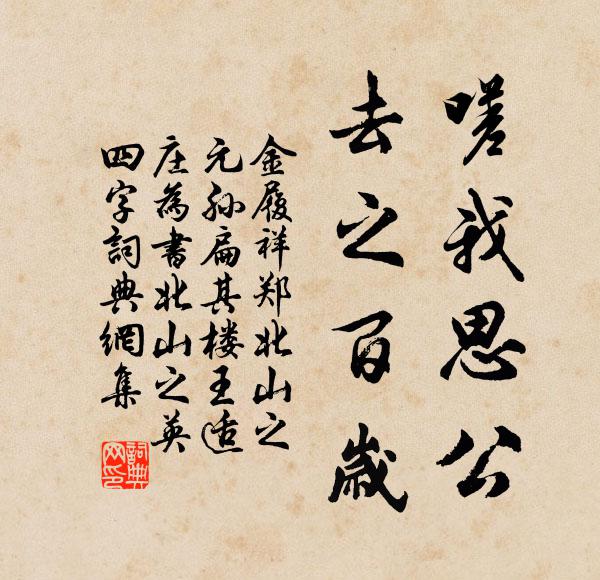 嗟我思公
去之百歲
金履祥郑北山之
元孙扁其楼王适
庄為書北山之英
四字詞典網集
詞典網印